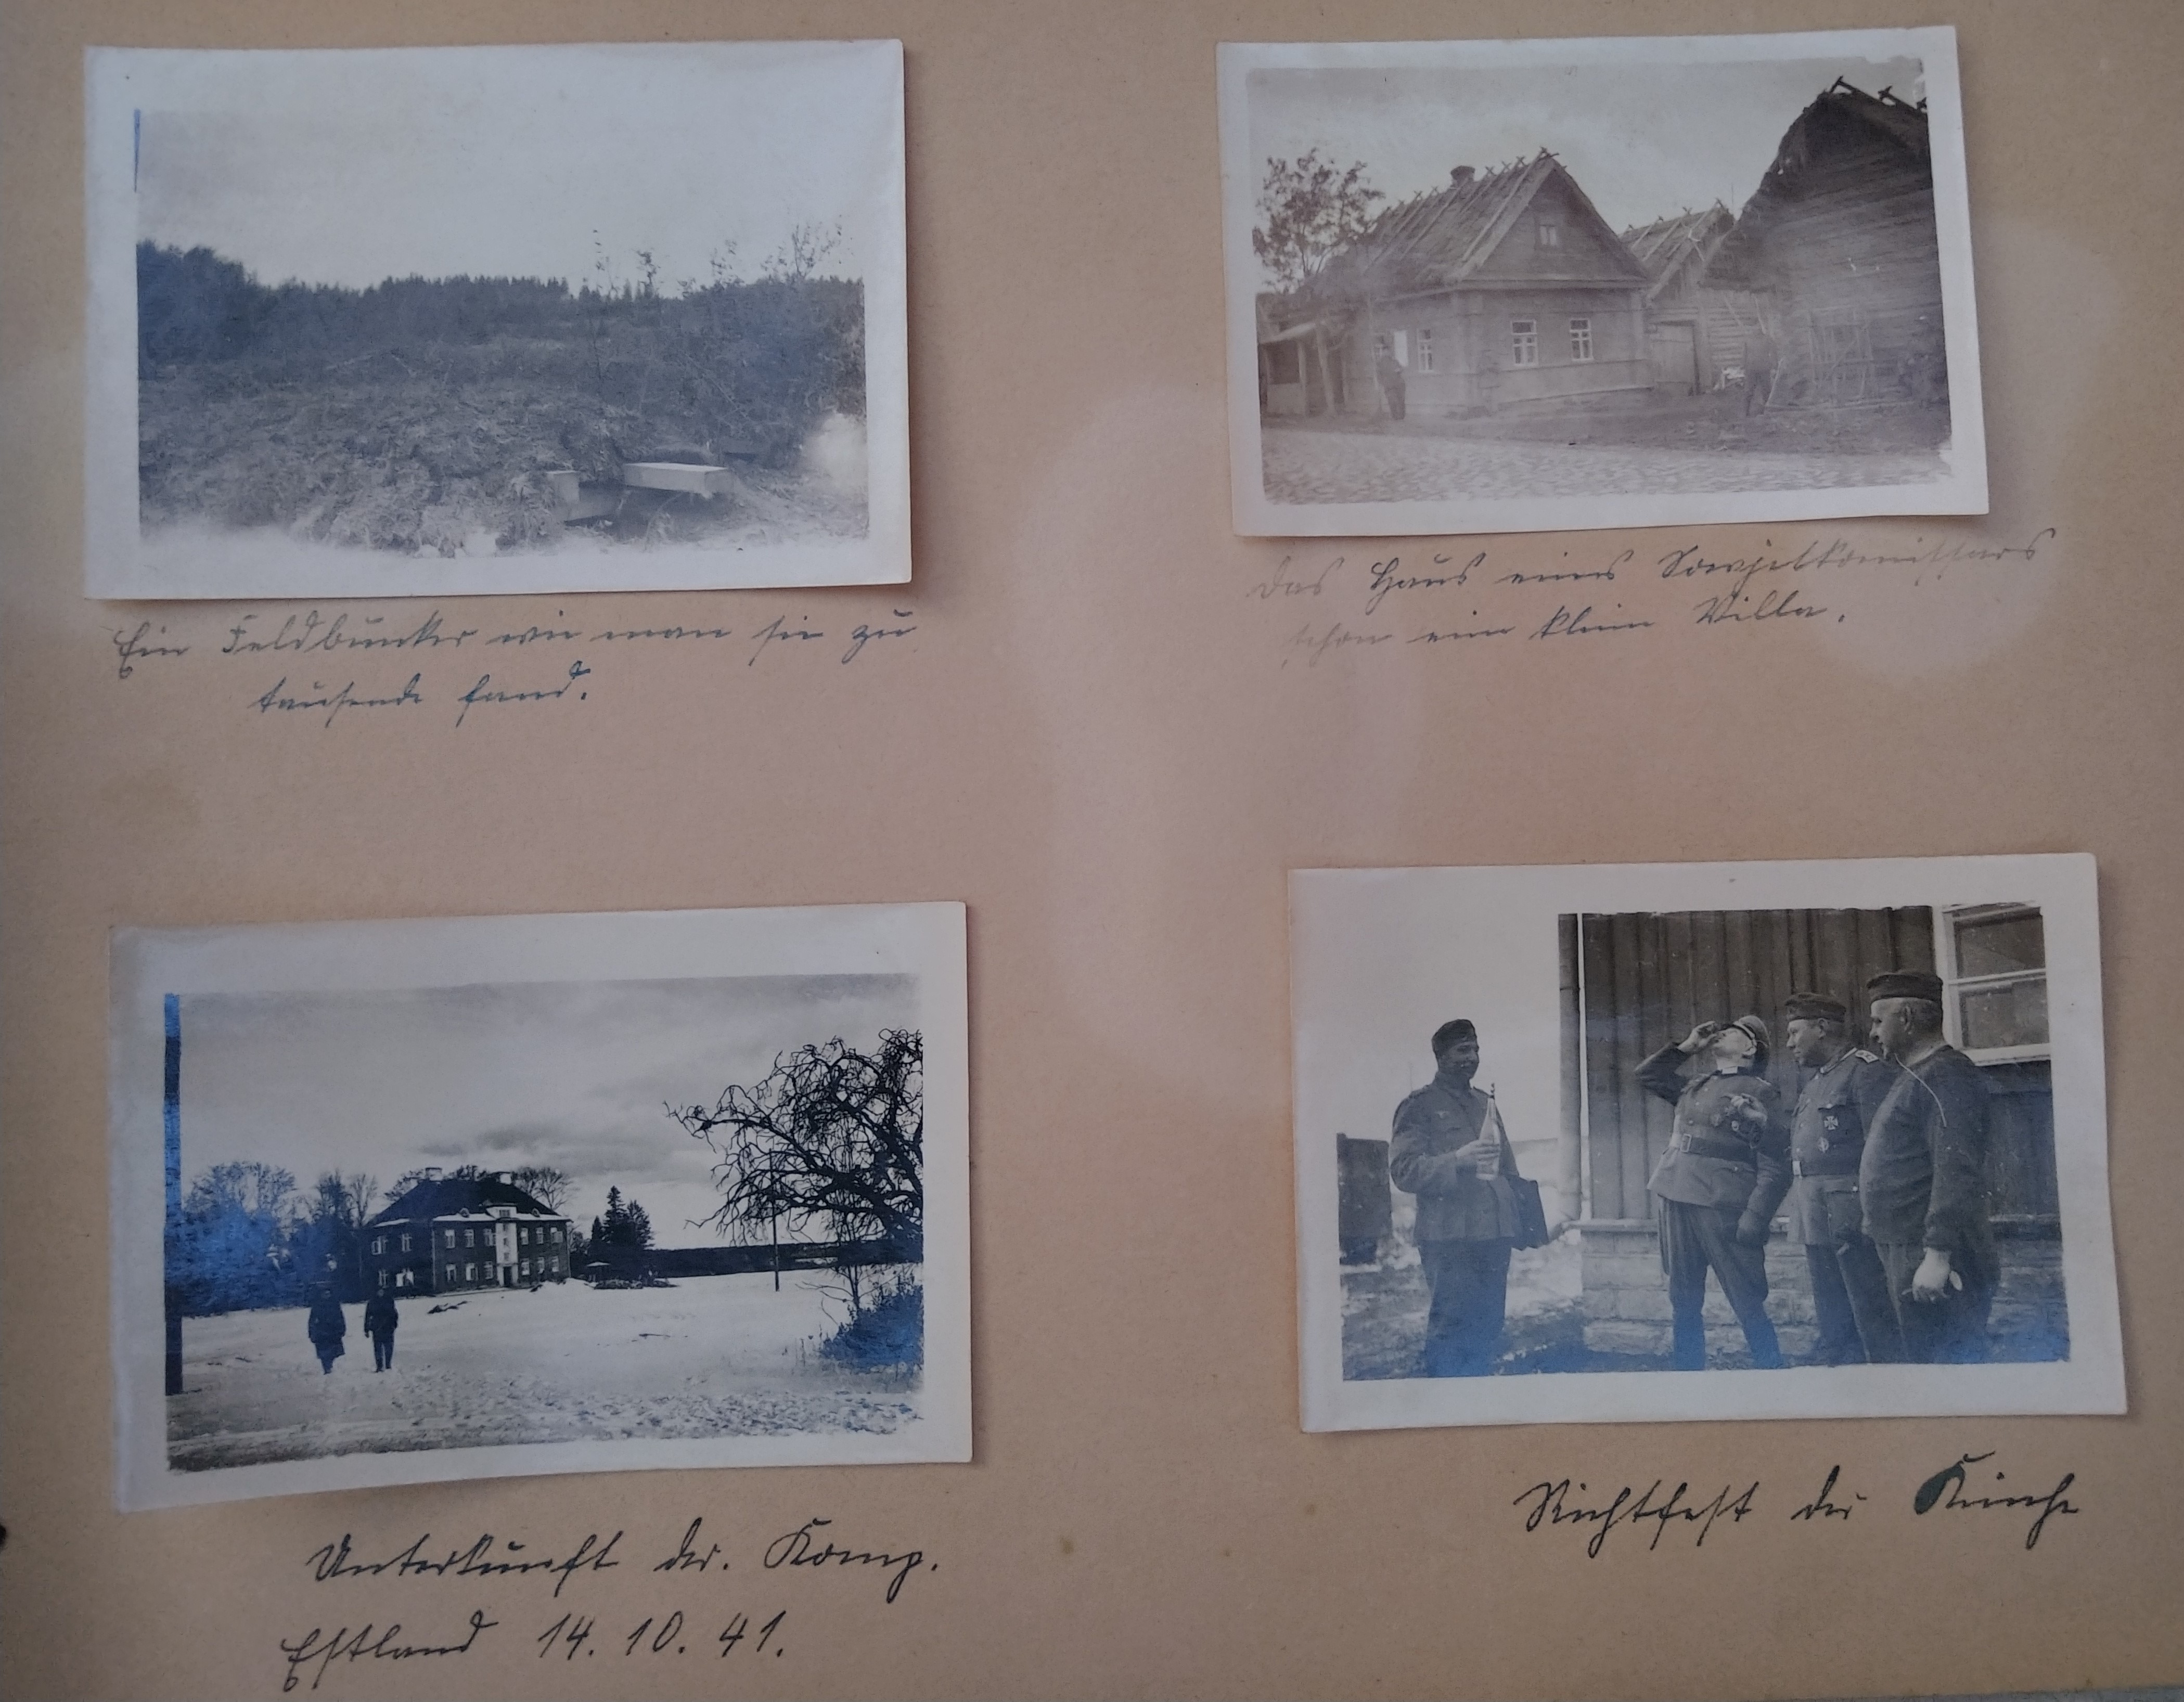 Ein Feldbunker wie man sie zu
tausende fand.
Das Haus eines Sowjetkomissars
schon eine kleine Villa.
Unterkunft der. Komp.
Estland 14. 10. 41.
Richtfest der